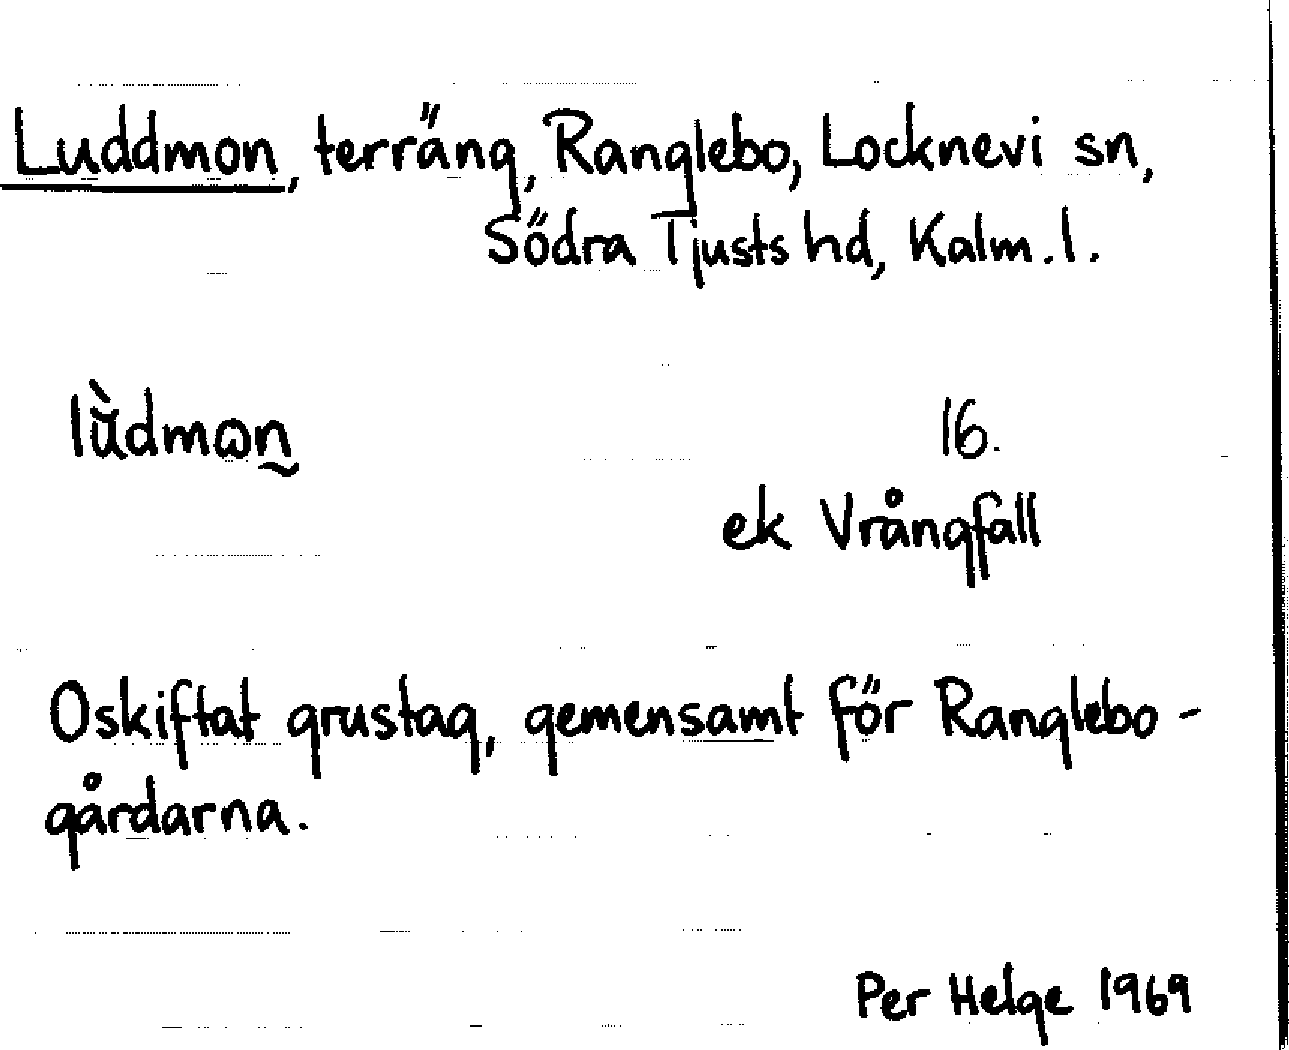 Luddmon, terräng, Ranglebo, Locknevi sn,
Södra Tjusts hd, Kalm. l.
lùdmωn̰
16.
ek Vrångfall
Oskiftat grustag, gemensamt för Ranglebo-
gårdarna.
Per Helge 1969